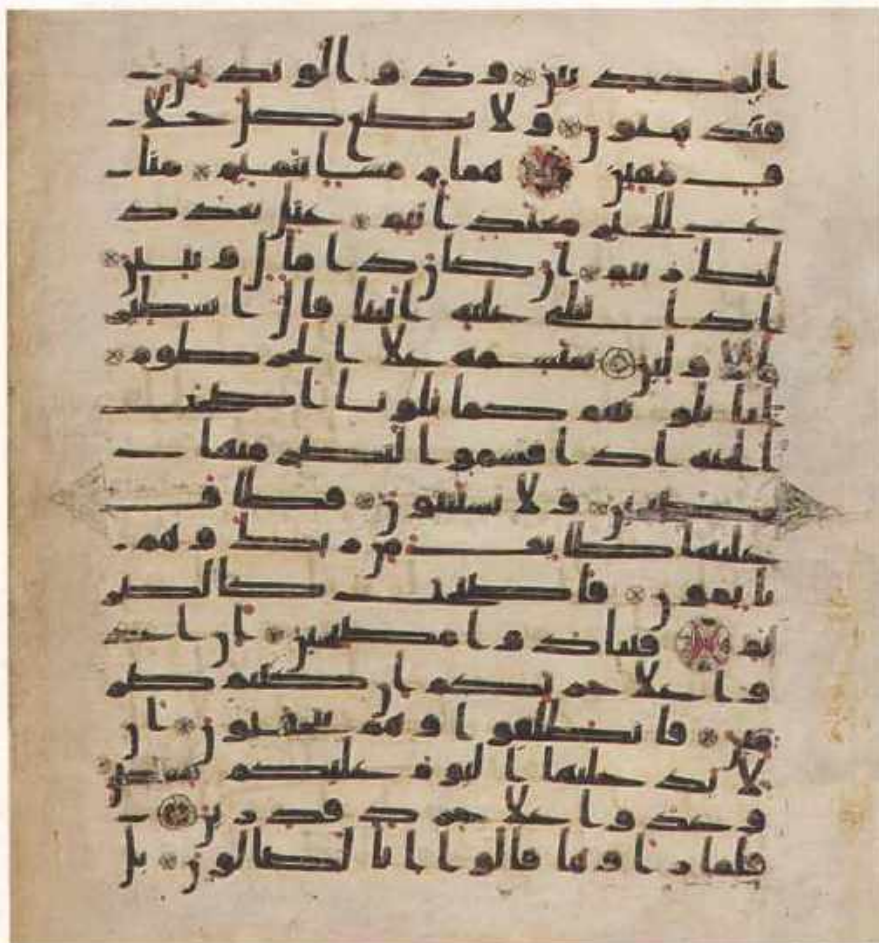 المكذبين ودوا لو تدهن
فيدهنون ولا تطع كل حلا
ف مهين هماز مشا بنميم منا
ع للخير معتد اثيم عتل بعد ذ
لك زنيم ان كان ذا مال وبنين
اذا تتلى عليه ايتنا قال اسطير
الاولين سنسمه علا الخرطوم
انا بلونهم كما بلونا اصحب
الجنة اذ اقسموا ليصرمنها
مصبحين ولا يستثنون فطاف
عليها طائف من ربك وهم
نايمون فاصبحت كالصر
يم فتنادوا مصبحين ان اغد
وا علا حرثكم ان كنتم صر
مين فانطلقوا وهم يتخفتون ان
لا يدخلنها اليوم عليكم مسكين
وغدوا علا حرد قدرين
فلما راوها قالوا انا لضالون بل